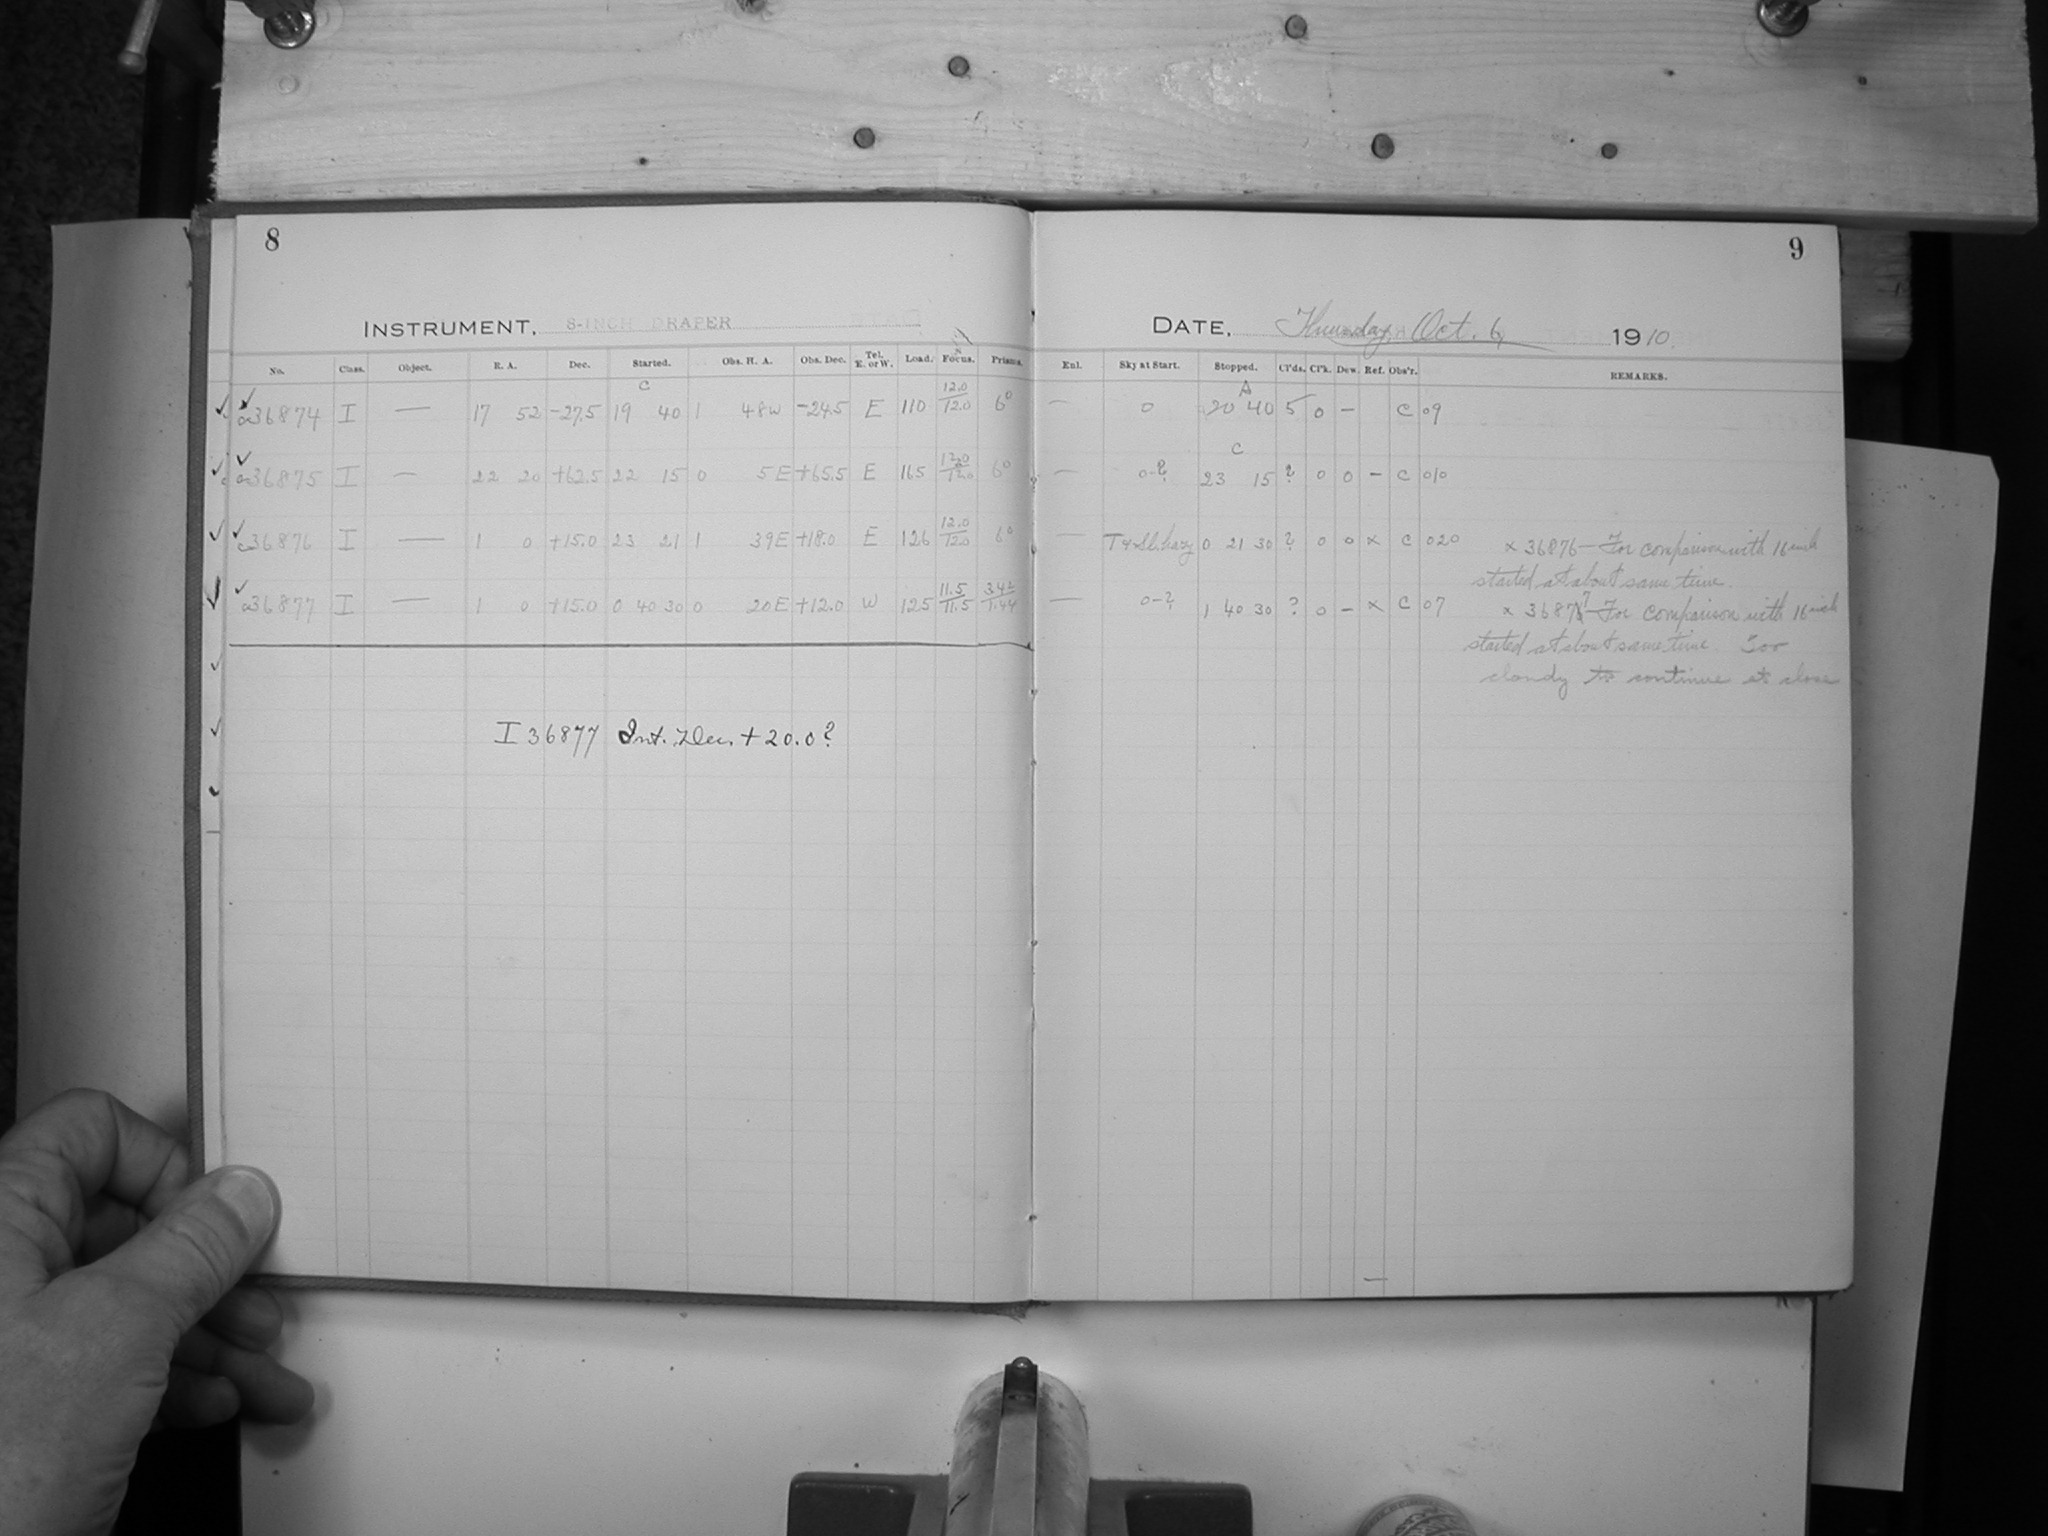 8
INSTRUMENT, 8-INCH DRAPER
No. Class. Object. R. A. Dec. Started. Obs. H. A. Obs. Dec. Tel. E. or W. Load. Focus. Prisms.
36874 I — 17 52 -27.5 19 40 C 1 48 W -24.5 E 110 12.0/12.0 6°
36875 I — 22 20 +62.5 22 15 0 5 E +65.5 E 165 12.0/12.0 6°
36876 I — 1 0 +15.0 23 21 1 39 E +18.0 E 126 12.0/12.0 6°
36877 I — 1 0 +15.0 0 40 30 0 20 E +12.0 W 125 11.5/11.5
I 36877 Int. Dec. +20.0?
9
DATE, Thursday, Oct. 6, 1910.
Enl. Sky at Start. Stopped. Cl'ds. Cl'k. Dew. Ref. Obs'r. REMARKS.
— 0 20 40 A 5 0 – C 09
— 0-? 23 15 C ? 0 0 – C 010
— 0 21 30 ? 0 0 x C 020 x 36876—For comparison with 16 inch
started at about same time.
— 0-? 1 40 30 ? 0 – x C 07 x 36877—For comparison with 16 inch
started at about same time. Too
cloudy to continue at close